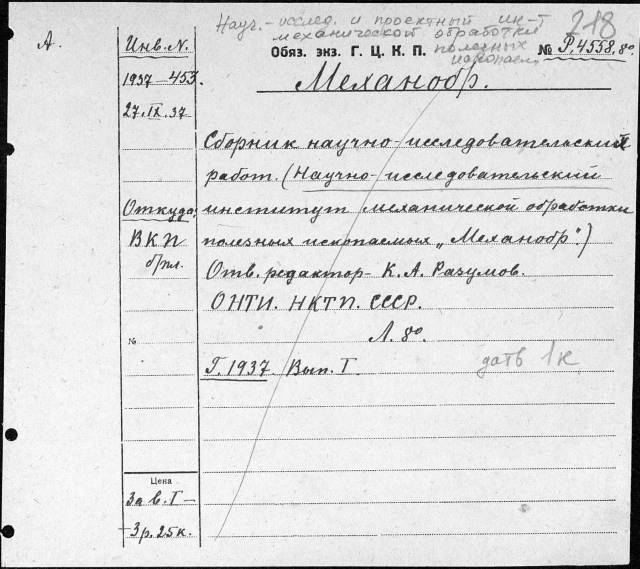 А.
Науч.-исслед. и проектный ин-т
механической обработки
полезных
ископаем.
218
Обяз. экз. Г. Ц. К. П.
№ Р.4558.8º
Механобр.
Инв. N.
1937-453.
27.IX.37
Сборник научно-исследовательских
работ. (Научно-исследовательский
Откуда:
институт механической обработки
ВКП
б/пл.
полезных ископаемых „Механобр“.)
Отв. редактор - К. А. Разумов.
ОНТИ. НКТП. СССР.
№
Л. 8º
Г. 1937. Вып. I.
дать 1 к
Цена
За в. I-
3р. 25к.